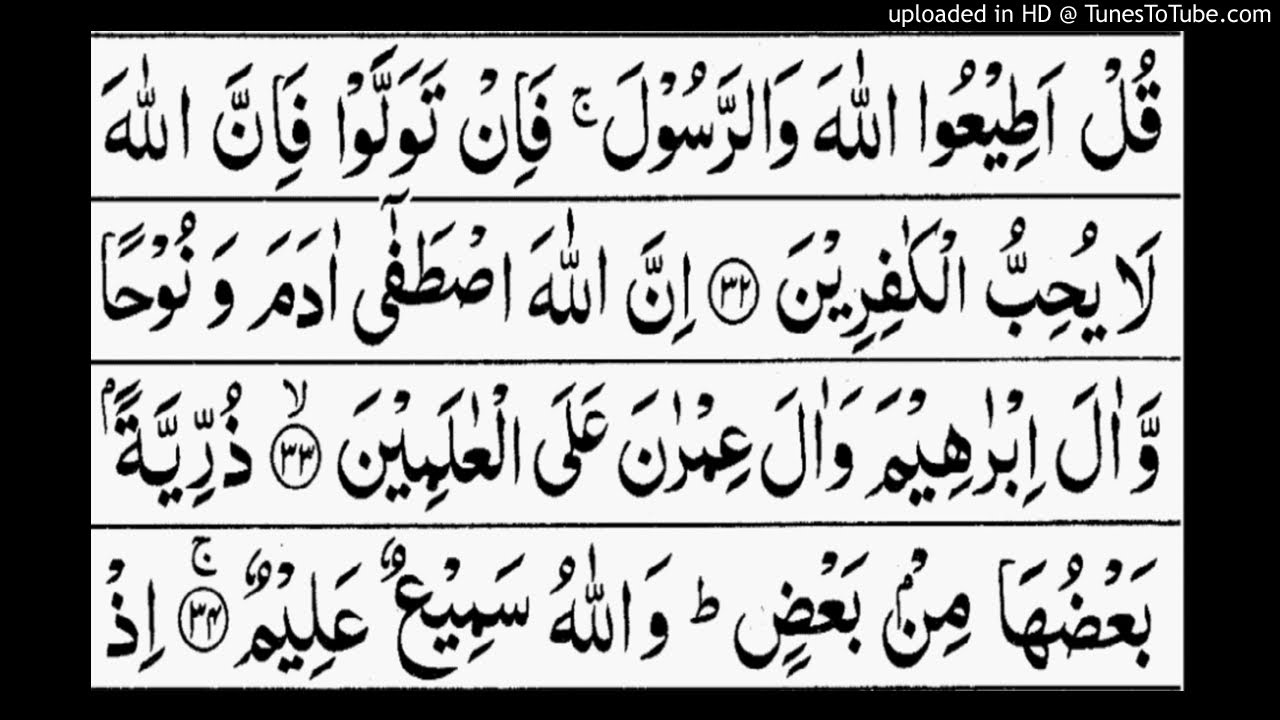 uploaded in HD @ TunesToTube.com
قُلْ اَطِيْعُوا اللّٰهَ وَالرَّسُوْلَ ۚ فَاِنْ تَوَلَّوْا فَاِنَّ اللّٰهَ
لَا يُحِبُّ الْكٰفِرِيْنَ ﴿۳۲﴾ اِنَّ اللّٰهَ اصْطَفٰٓى اٰدَمَ وَ نُوْحًا
وَّاٰلَ اِبْرٰهِيْمَ وَاٰلَ عِمْرٰنَ عَلَى الْعٰلَمِيْنَ ﴿۳۳﴾ۙ ذُرِّيَّةًۢ
بَعْضُهَا مِنْۢ بَعْضٍ ؕ وَاللّٰهُ سَمِيْعٌ عَلِيْمٌ ﴿۳۴﴾ۚ اِذْ